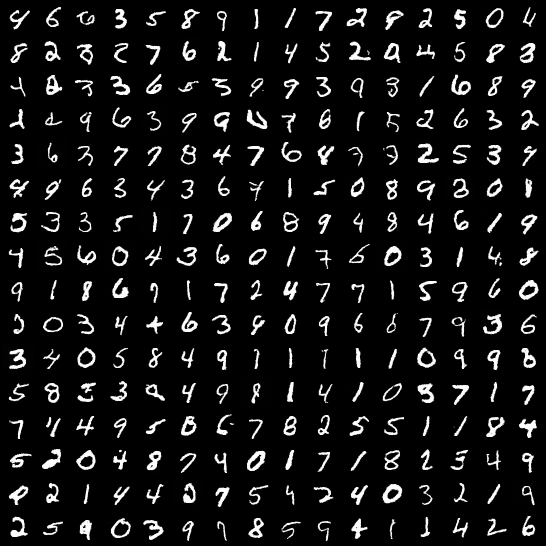 4 6 6 3 5 8 9 1 1 7 2 9 2 5 0 4
8 2 3 2 7 6 2 1 4 5 2 4 5 8 3
1 8 3 3 6 5 3 9 9 3 9 3 1 6 8 9
1 2 9 6 3 9 9 7 8 1 5 2 6 3 2
3 6 3 7 7 8 4 7 6 8 7 7 2 5 3 9
9 9 6 3 4 3 6 7 1 5 0 8 9 3 0 1
5 3 3 5 1 7 0 6 8 9 4 8 4 6 1 9
4 5 6 0 4 3 6 0 1 7 5 0 3 1 4 8
9 1 8 6 9 1 7 2 4 7 7 1 5 9 6 0
0 3 4 4 6 3 9 0 9 6 6 7 9 3 6
3 4 0 5 8 4 9 1 1 1 1 1 0 9 9 8
5 8 3 2 4 9 8 1 4 1 0 3 7 1 7
7 4 4 9 5 8 6 7 8 2 5 5 1 1 8 4
5 2 0 4 8 7 4 0 1 7 1 8 2 3 4 9
8 2 1 4 4 2 7 5 4 2 4 0 3 2 1 9
2 5 9 0 3 9 9 8 5 9 4 1 1 4 2 6